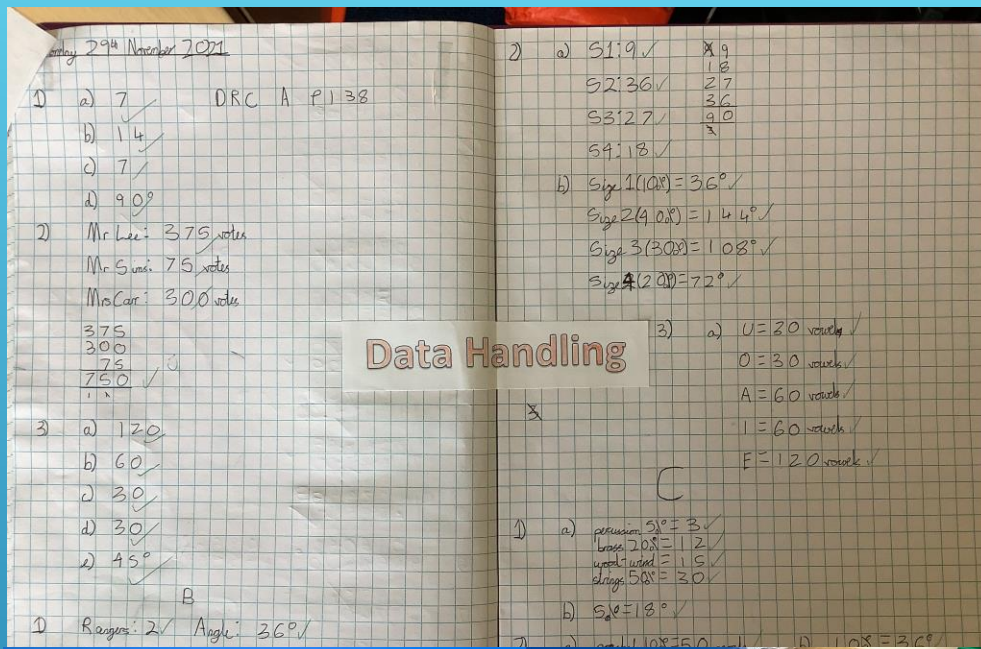 29th November 2021
1) a) 7 DRC A P138
b) 14
c) 7
d) 90°
2) Mr Lee: 375 votes
Mr Sims: 75 votes
Mrs Carr: 300 votes
375
300
75
750
3) a) 120
b) 60
c) 30
d) 30
e) 45°
B
1) Rangers: 2 Angle: 36°
2) a) S1:9
S2:36
S3:27
S4:18
9
18
27
36
90
b) Size 1(10%)=36°
Size 2(40%)=144°
Size 3(30%)=108°
Size 4(20%)=72°
Data Handling
3) a) U=30 vowels
O=30 vowels
A=60 vowels
I=60 vowels
E=120 vowels
C
1) a) percussion 5%=3
brass 20%=12
wood-wind=15
strings 50%=30
b) 5%=18°
10%=50 b) 10%=36°